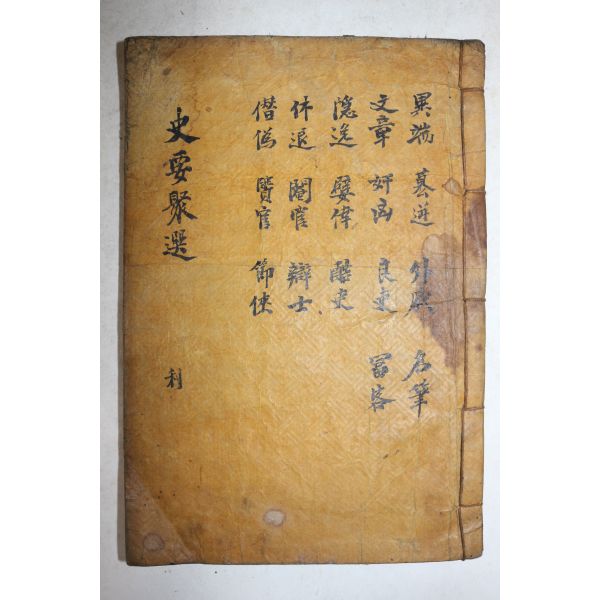 異端 簒逆 外戚 名筆
文章 奸凶 良吏 冨客
隱逸 嬖倖 酷吏
休退 閹宦 辯士
僭僞 賢宦 節俠
史要聚選 利